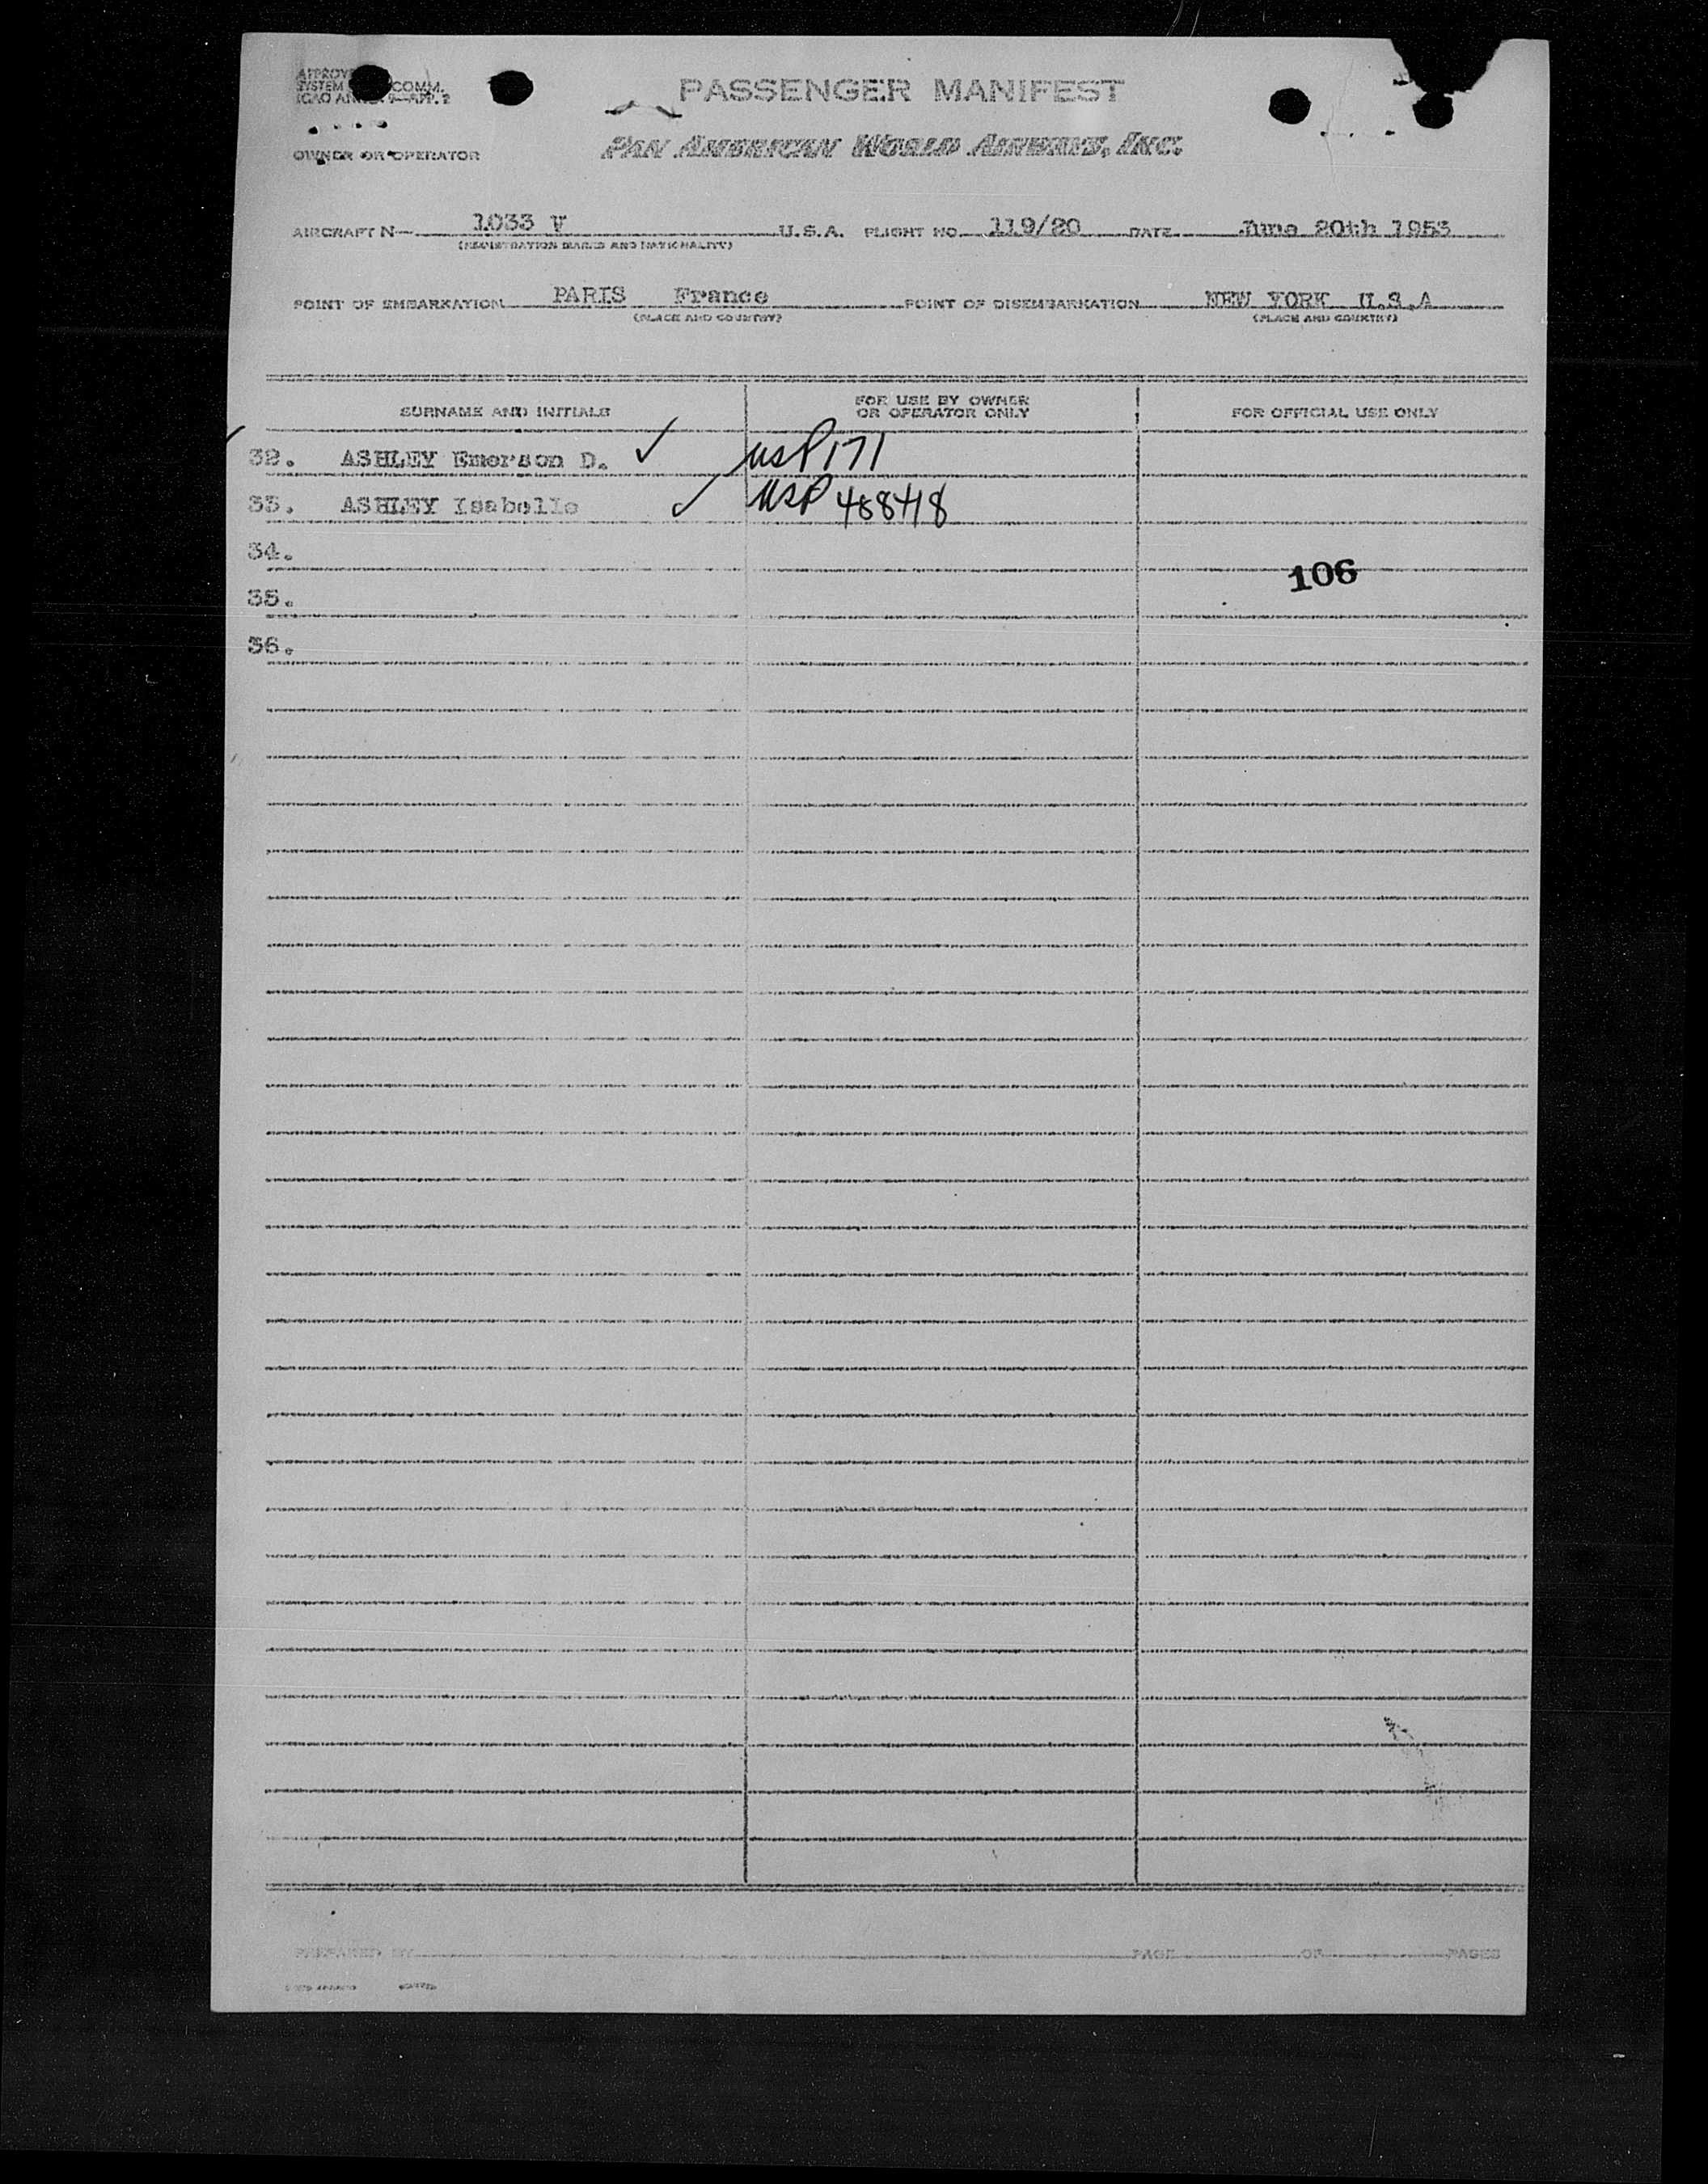 PASSENGER MANIFEST
COMM.
OWNER OR OPERATOR
PAN AMERICAN WORLD AIRWAYS, INC.
AIRCRAFT N— 1033 V U.S.A. FLIGHT NO. 119/20 DATE June 20th 1953
(REGISTRATION MARKS AND NATIONALITY)
POINT OF EMBARKATION PARIS France POINT OF DISEMBARKATION NEW YORK U.S.A
(PLACE AND COUNTRY) (PLACE AND COUNTRY)
SURNAME AND INITIALS
FOR USE BY OWNER
OR OPERATOR ONLY
FOR OFFICIAL USE ONLY
32. ASHLEY Emerson D. ✓ USP 171
33. ASHLEY Isabelle ✓ USP 48848
34.
106
35.
36.
PREPARED BY PAGE OF PAGES